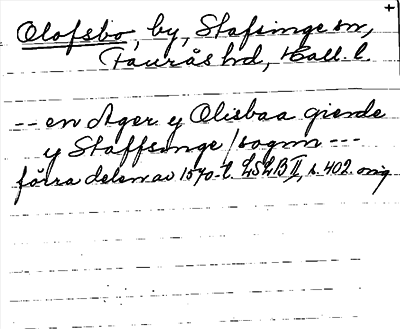 +
Olofsbo, by, Stafsinge sn,
Faurås hd, Hall. l.
-- en Ager y Olisbaa giende
y Staffsinge /sognn ---
förra delen av 1570-t. LSLB II, s. 402. orig